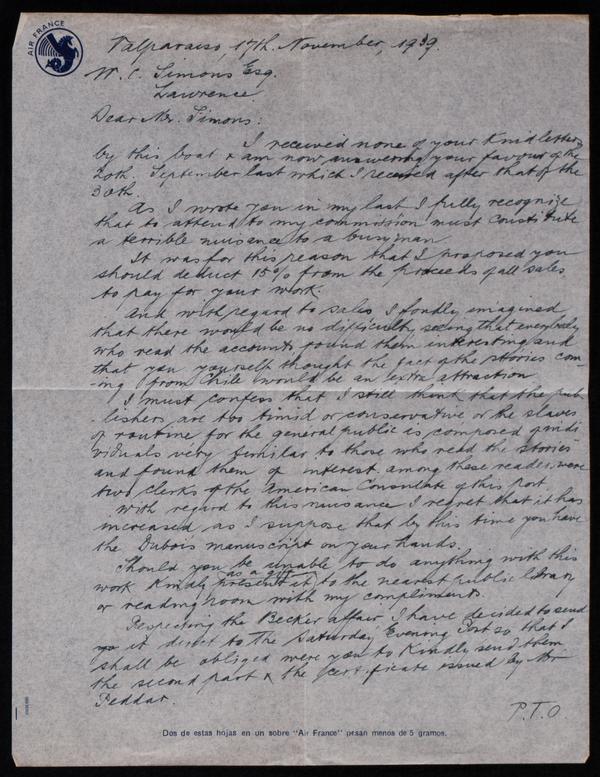 AIR FRANCE
Valparaiso, 17th. November, 1939.
W. C. Simons Esq.
Lawrence
Dear Mr. Simons:
I received none of your Kind letters
by this boat & am now answering your favour of the
20th. September last which I received after that of the
30th.
As I wrote you in my last I fully recognize
that to attend to my commission must constitute
a terrible nuisance to a busy man
It was for this reason that I proposed you
should deduct 15% from the proceeds of all sales
to pay for your work.
And with regard to sales I fondly imagined
that there would be no difficulty seeing that everybody
who read the accounts found them interesting and
that you yourself thought the fact of the stories com-
-ing from Chile would be an extra attraction
I must confess that I still think that the pub-
-lishers are too timid or conservative or the slaves
of routine for the general public is composed of indi
viduals very similar to those who read the stories
and found them of interest among these readers were
two clerks of the American Consulate of this port
With regard to this nuisance I regret that it has
increased as I suppose that by this time you have
the Dubois manuscript on your hands.
Should you be unable to do anything with this
work Kindly present it as a gift to the nearest public library
or reading room with my compliments.
Respecting the Becker affair I have decided to send
it direct to the Saturday Evening Post so that I
shall be obliged were you to Kindly send them
the second part & the certificate issued by Mr
Peddar.
P.T.O.
Dos de estas hojas en un sobre "Air France" pesan menos de 5 gramos.